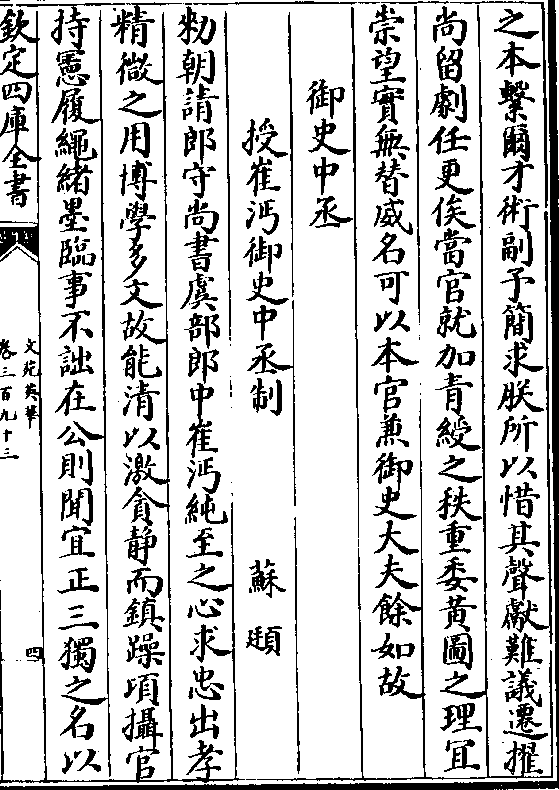 之本繫爾才術副予簡求朕所以惜其聲獻難議遷擢
尚留劇任更俟當官就加青綬之秩重委黄圖之理宜
崇望實無替威名可以本官兼御史大夫餘如故
御史中丞
授崔沔御史中丞制 蘇頲
勑朝請郎守尚書虞部郎中崔沔純至之心求忠出孝
精微之用博學多文故能清以激貪静而鎮躁頃攝官
持憲履繩緒墨臨事不詘在公則聞宜正三獨之名以
欽定四庫全書
文苑英華
卷三百九十三
四